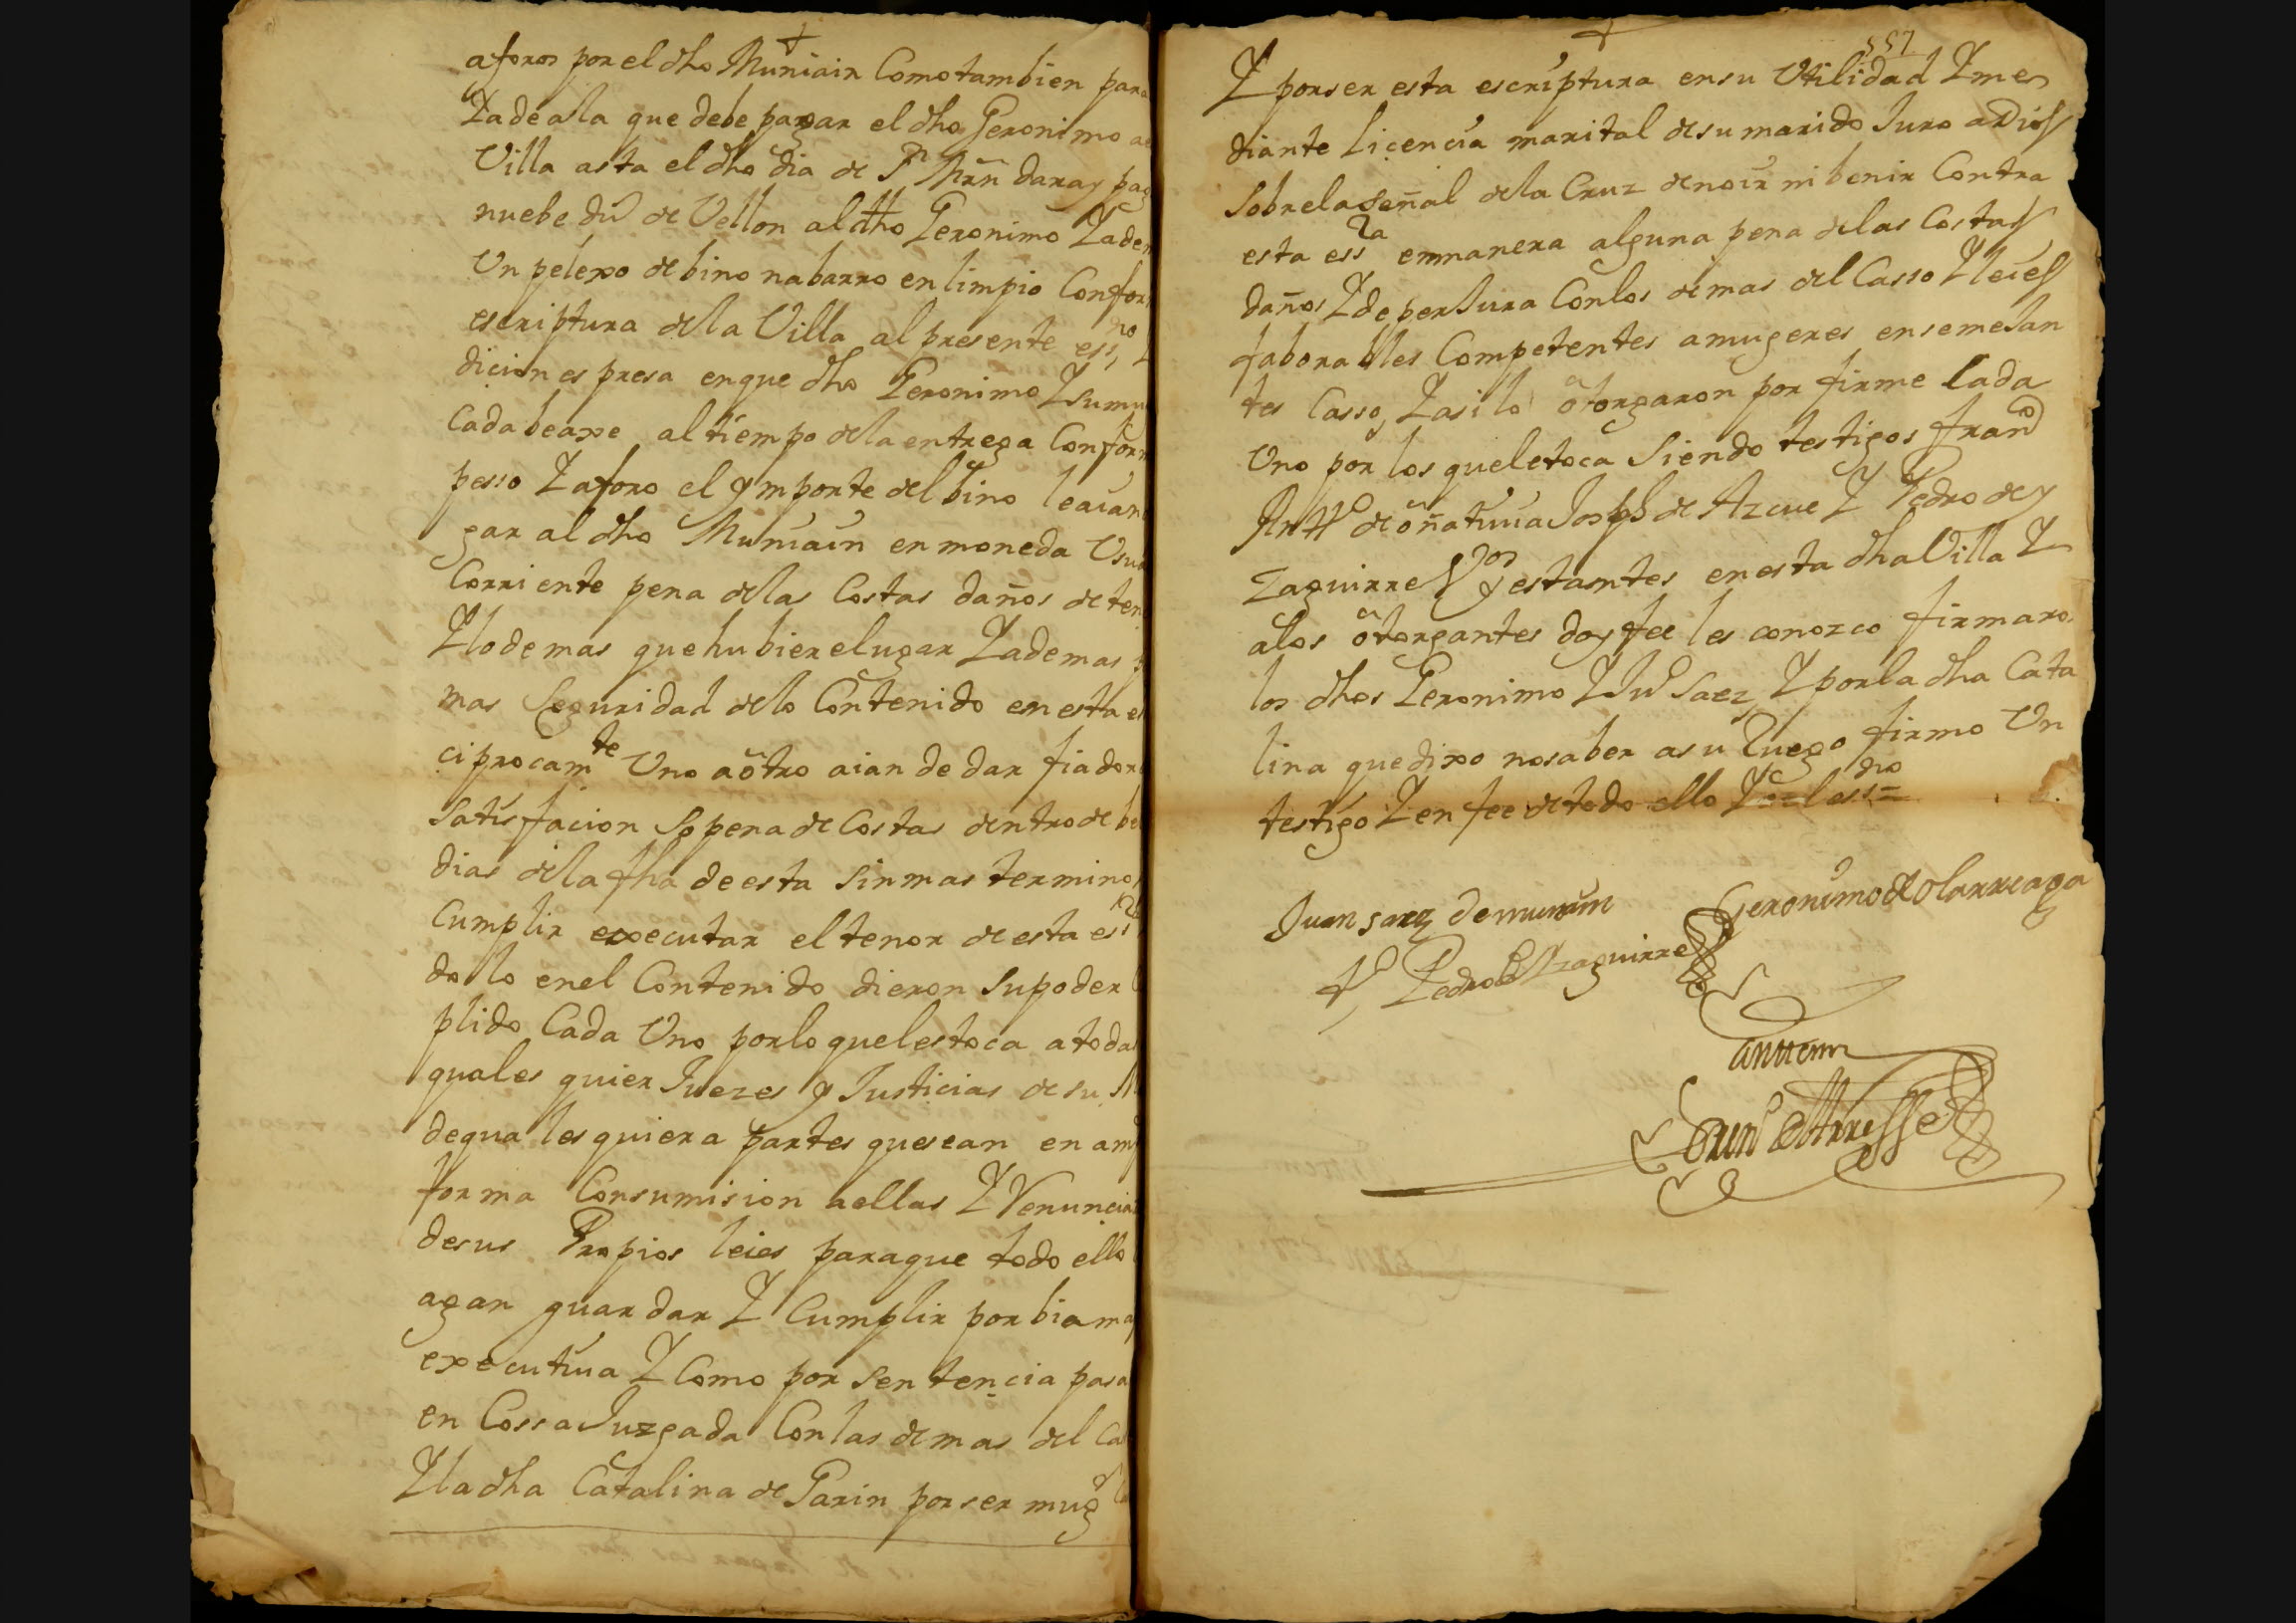 aforos por el dho Muniain Como tambien para
Y adeala que debe pagar el dho Geronimo
Villa asta el dho dia de Sn Mrñ dara y pag
nuebe du de Vellon al dho Geronimo Y ade
Un pelexo de bino nabarro en limpio Confor
escriptura de la Villa al presente essno
dicion espresa en que dho Geronimo Y su mu
Cada beaxe al tiempo de la entrega Conform
pesso Y aforo el ymporte del bino le aian
gar al dho Muniain en moneda Usua
Corriente pena de las Costas daños
Y lo demas que hubiere lugar Y ademas
mas Seguridad de lo Contenido en esta
ciprocamte Uno a otro aian de dar fiador
Satisfacion So pena de Costas dentro de
dias de la fha de esta sin mas termino
Cumplir executar el tenor de esta
do lo en el Contenido dieron Su poder
plido Cada Uno por lo que les toca a toda
quales quier Juezes y Justicias de su M
de qua les quiera partes que sean en am
forma Con sumision a ellas Y Renuncia
de sus Propios leies para que todo ello
agan guardar Y Cumplir por bia ma
executiua Y Como por Sentencia pasa
en Cossa Juzgada Con las demas del Ca
Y la dha Catalina de Garin por ser mug
557
Y por ser esta escriptura en su Utilidad Y me
diante Licencia marital de su marido Juro a Dios
Sobre la Señal de la Cruz de no ir ni benir Contra
esta essra en manera alguna pena de las Costas
daños Y de perJura Con los demas del Casso Y leies
faborables Competentes a mugeres en semeJan
tes Casso, Y asi lo otorgaron por firme Cada
Uno por los que le toca Siendo testigos franco
Antto de oñatiuia Joseph de Azcue Y Pedro de
Yzaguirre Vos y estantes en esta dha Villa Y
a los otorgantes doy fee les conozco firmaro
los dhos Geronimo Y Ju Saez, Y por la dha Cata
lina que dixo no saber a su Ruego firmo Un
testigo Y en fee de todo ello Yo el essno=
Juan saez de muniain
Geronimo de olarreaga
to Pedro de Yzaguirre
Ante mi